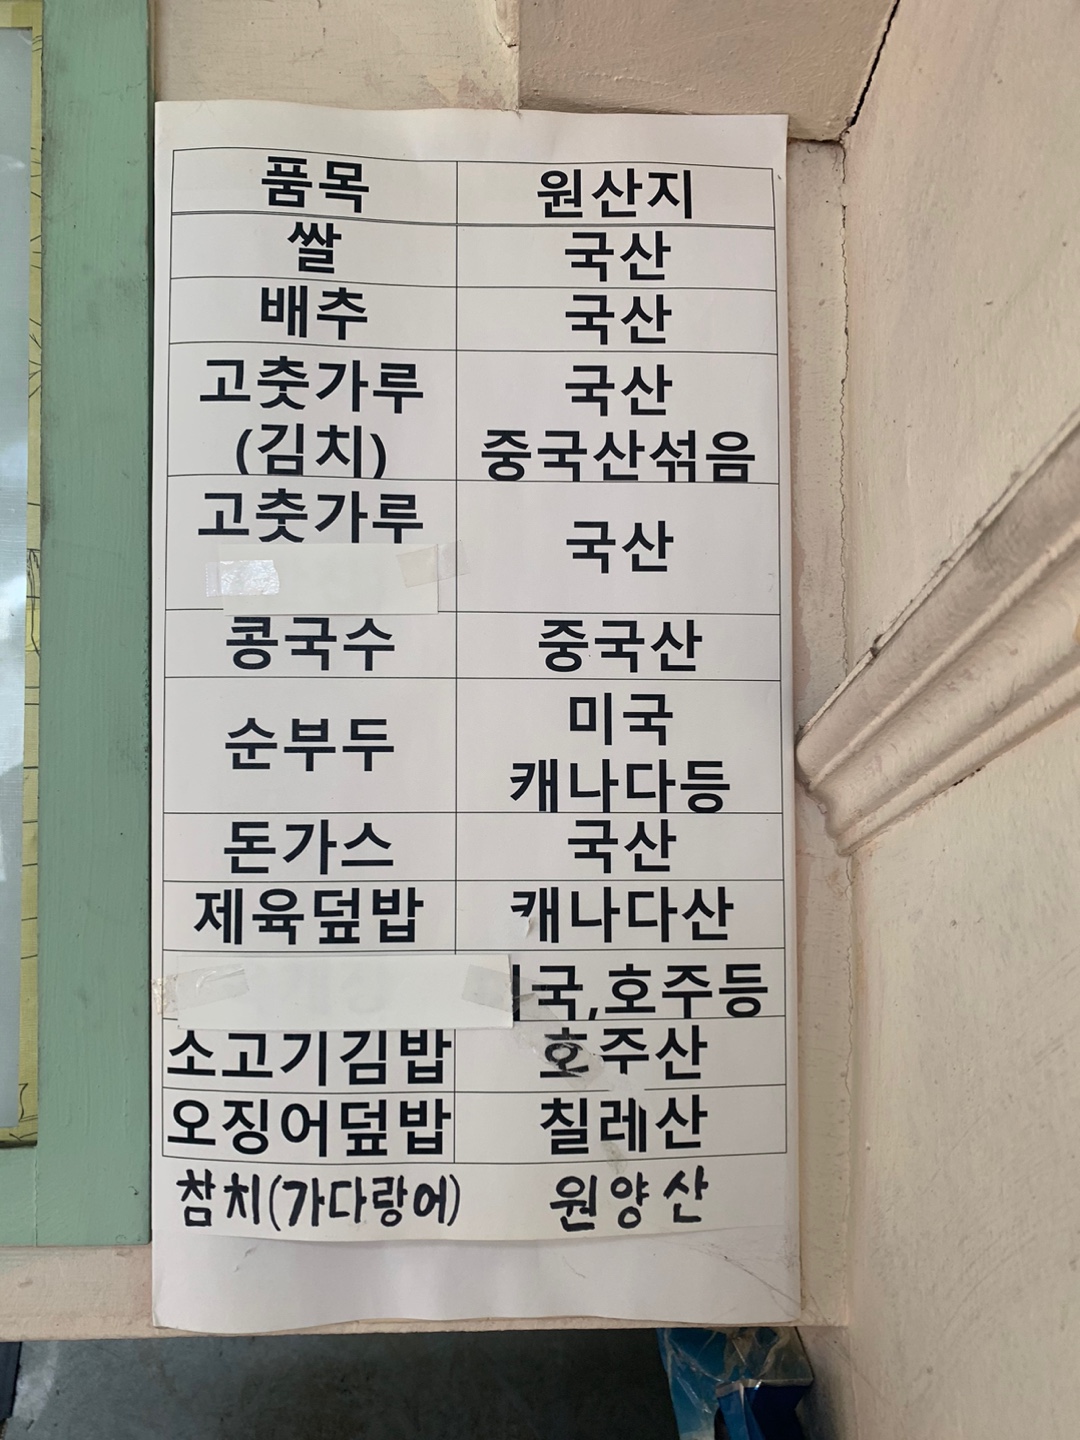 품목 원산지
쌀 국산
배추 국산
고춧가루 국산
(김치) 중국산섞음
고춧가루 국산
콩국수 중국산
순부두 미국
캐나다등
돈가스 국산
제육덮밥 캐나다산
국,호주등
소고기김밥 호주산
오징어덮밥 칠레산
참치(가다랑어) 원양산